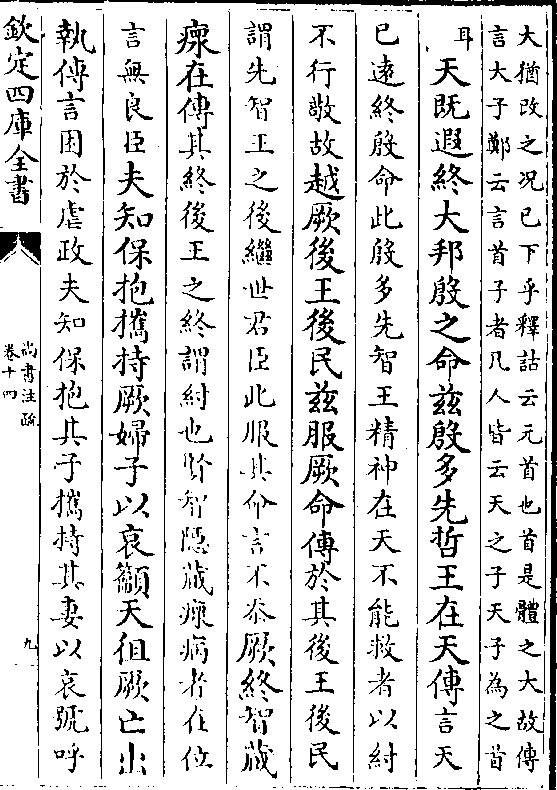 大猶改之况已下乎釋詁云元首也首是體之大故傳
言大子鄭云言首子者凡人皆云天之子天子為之首
耳天既遐終大邦殷之命兹殷多先哲王在天傳言天
已遠終殷命此殷多先智王精神在天不能救者以紂
不行敬故越厥後王後民兹服厥命傳於其後王後民
謂先智王之後繼世君臣此服其命言不忝厥終智藏
瘝在傳其終後王之終謂紂也賢智隱藏瘝病者在位
言無良臣夫知保抱攜持厥婦子以哀籲天徂厥亡出
執傳言困於虐政夫知保抱其子攜持其妻以哀號呼
欽定四庫全書
尚書注疏
卷十四
九